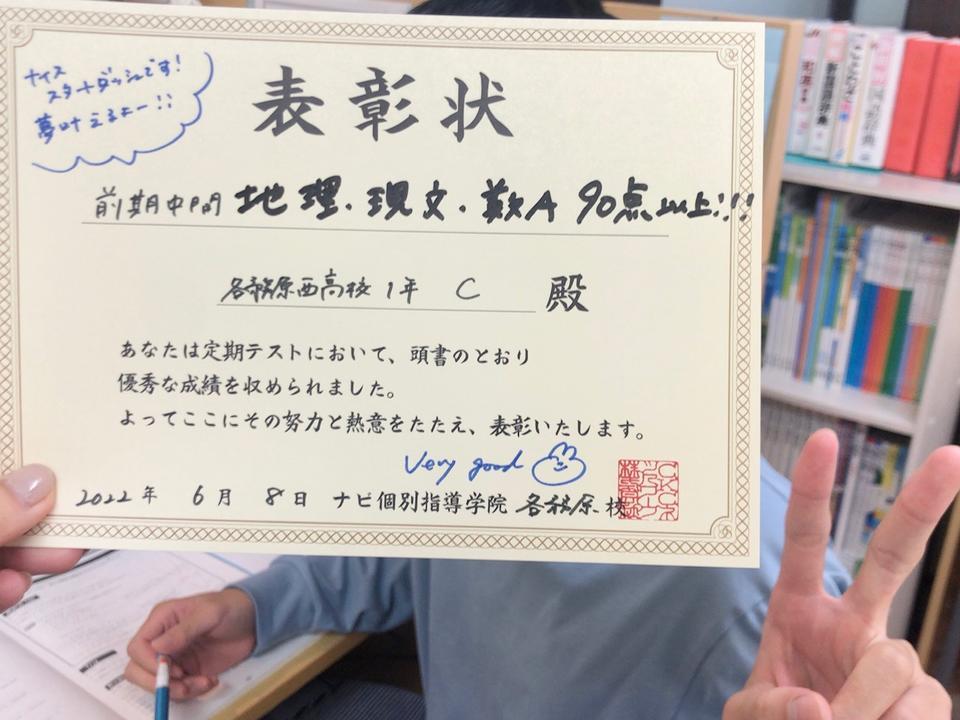 ナイス
スタートダッシュです!
夢叶えるよー!!
表彰状
前期中間 地理・現文・数A 90点以上!!!
各務原西高校 1年 C 殿
あなたは定期テストにおいて、頭書のとおり
優秀な成績を収められました。
よってここにその努力と熱意をたたえ、表彰いたします。
Very good
2022年 6月 8日 ナビ個別指導学院 各務原校